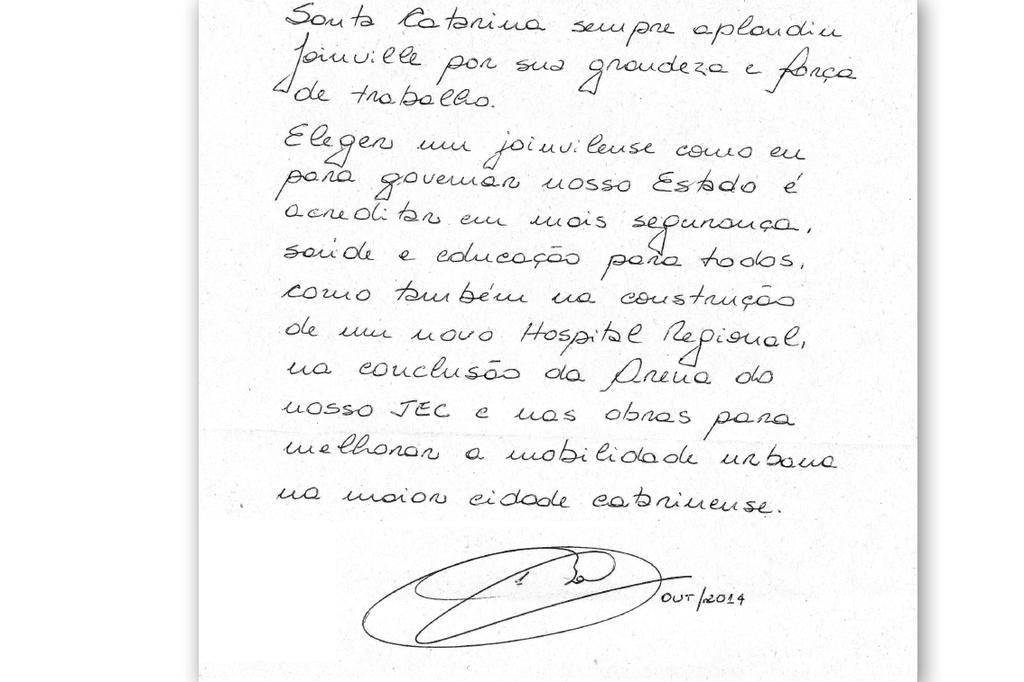 Santa Catarina sempre aplaudiu
Joinville por sua grandeza e força
de trabalho.
Eleger um joinvilense como eu
para governar nosso Estado é
acreditar em mais segurança,
saúde e educação para todos,
como também na construção
de um novo Hospital Regional,
na conclusão da Arena do
nosso JEC e nas obras para
melhorar a mobilidade urbana
na maior cidade catarinense.
OUT/2014